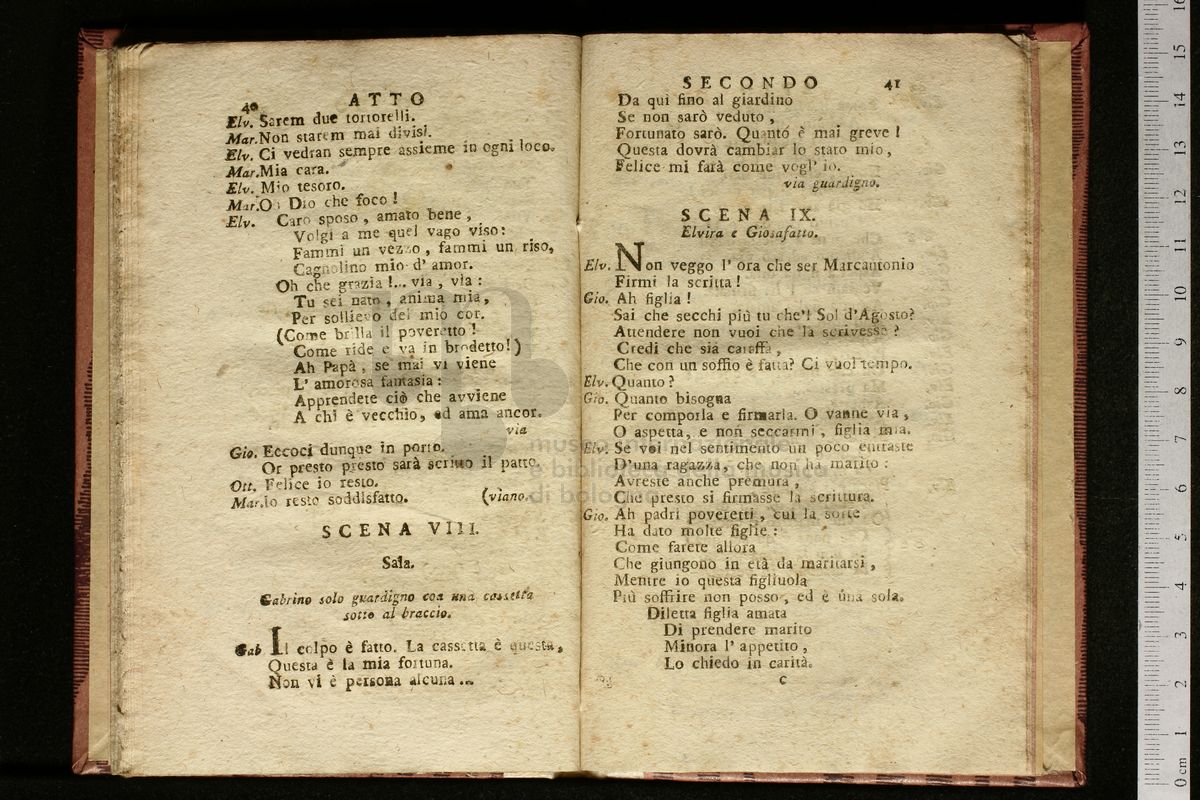 40 ATTO
Elv. Sarem due tortorelli.
Mar. Non starem mai divisi.
Elv. Ci vedran sempre assieme in ogni loco.
Mar. Mia cara.
Elv. Mio tesoro.
Mar. Oh Dio che foco !
Elv. Caro sposo , amato bene ,
Volgi a me quel vago viso:
Fammi un vezzo , fammi un riso,
Cagnolino mio d' amor.
Oh che grazia !... via , via :
Tu sei nato , anima mia ,
Per sollievo del mio cor.
(Come brilla il poveretto !
Come ride e va in brodetto! )
Ah Papà , se mai vi viene
L' amorosa fantasia :
Apprendete ciò che avviene
A chi è vecchio, ed ama ancor.
via
Gio. Eccoci dunque in porto.
Or presto presto sarà scritto il patto.
Ott. Felice io resto.
Mar. Io resto soddisfatto. (viano.
SCENA VIII.
Sala.
Gabrino solo guardigno con una cassetta
sotto al braccio.
Gab Il colpo è fatto. La cassetta è questa,
Questa è la mia fortuna.
Non vi è persona alcuna ...
SECONDO 41
Da qui fino al giardino
Se non sarò veduto ,
Fortunato sarò. Quanto è mai greve !
Questa dovrà cambiar lo stato mio ,
Felice mi farà come vogl' io.
via guardigno.
SCENA IX.
Elvira e Giosafatto.
Elv. Non veggo l' ora che ser Marcantonio
Firmi la scritta !
Gio. Ah figlia !
Sai che secchi più tu che'l Sol d'Agosto?
Attendere non vuoi che la scrivesse ?
Credi che sia caraffa ,
Che con un soffio è fatta? Ci vuol tempo.
Elv. Quanto ?
Gio. Quanto bisogna
Per comporla e firmarla. O vanne via ,
O aspetta, e non seccarmi , figlia mia.
Elv. Se voi nel sentimento un poco entraste
D'una ragazza, che non ha marito :
Avreste anche premura ,
Che presto si firmasse la scrittura.
Gio. Ah padri poveretti , cui la sorte
Ha dato molte figlie :
Come farete allora
Che giungono in età da maritarsi ,
Mentre io questa figliuola
Più soffrire non posso , ed è una sola.
Diletta figlia amata
Di prendere marito
Minora l' appetito ,
Lo chiedo in carità.
C